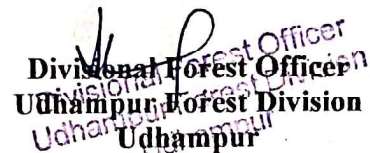 Divisional Forest Officer
Udhampur Forest Division
Udhampur
Divisional Forest Officer
Udhampur Forest Division